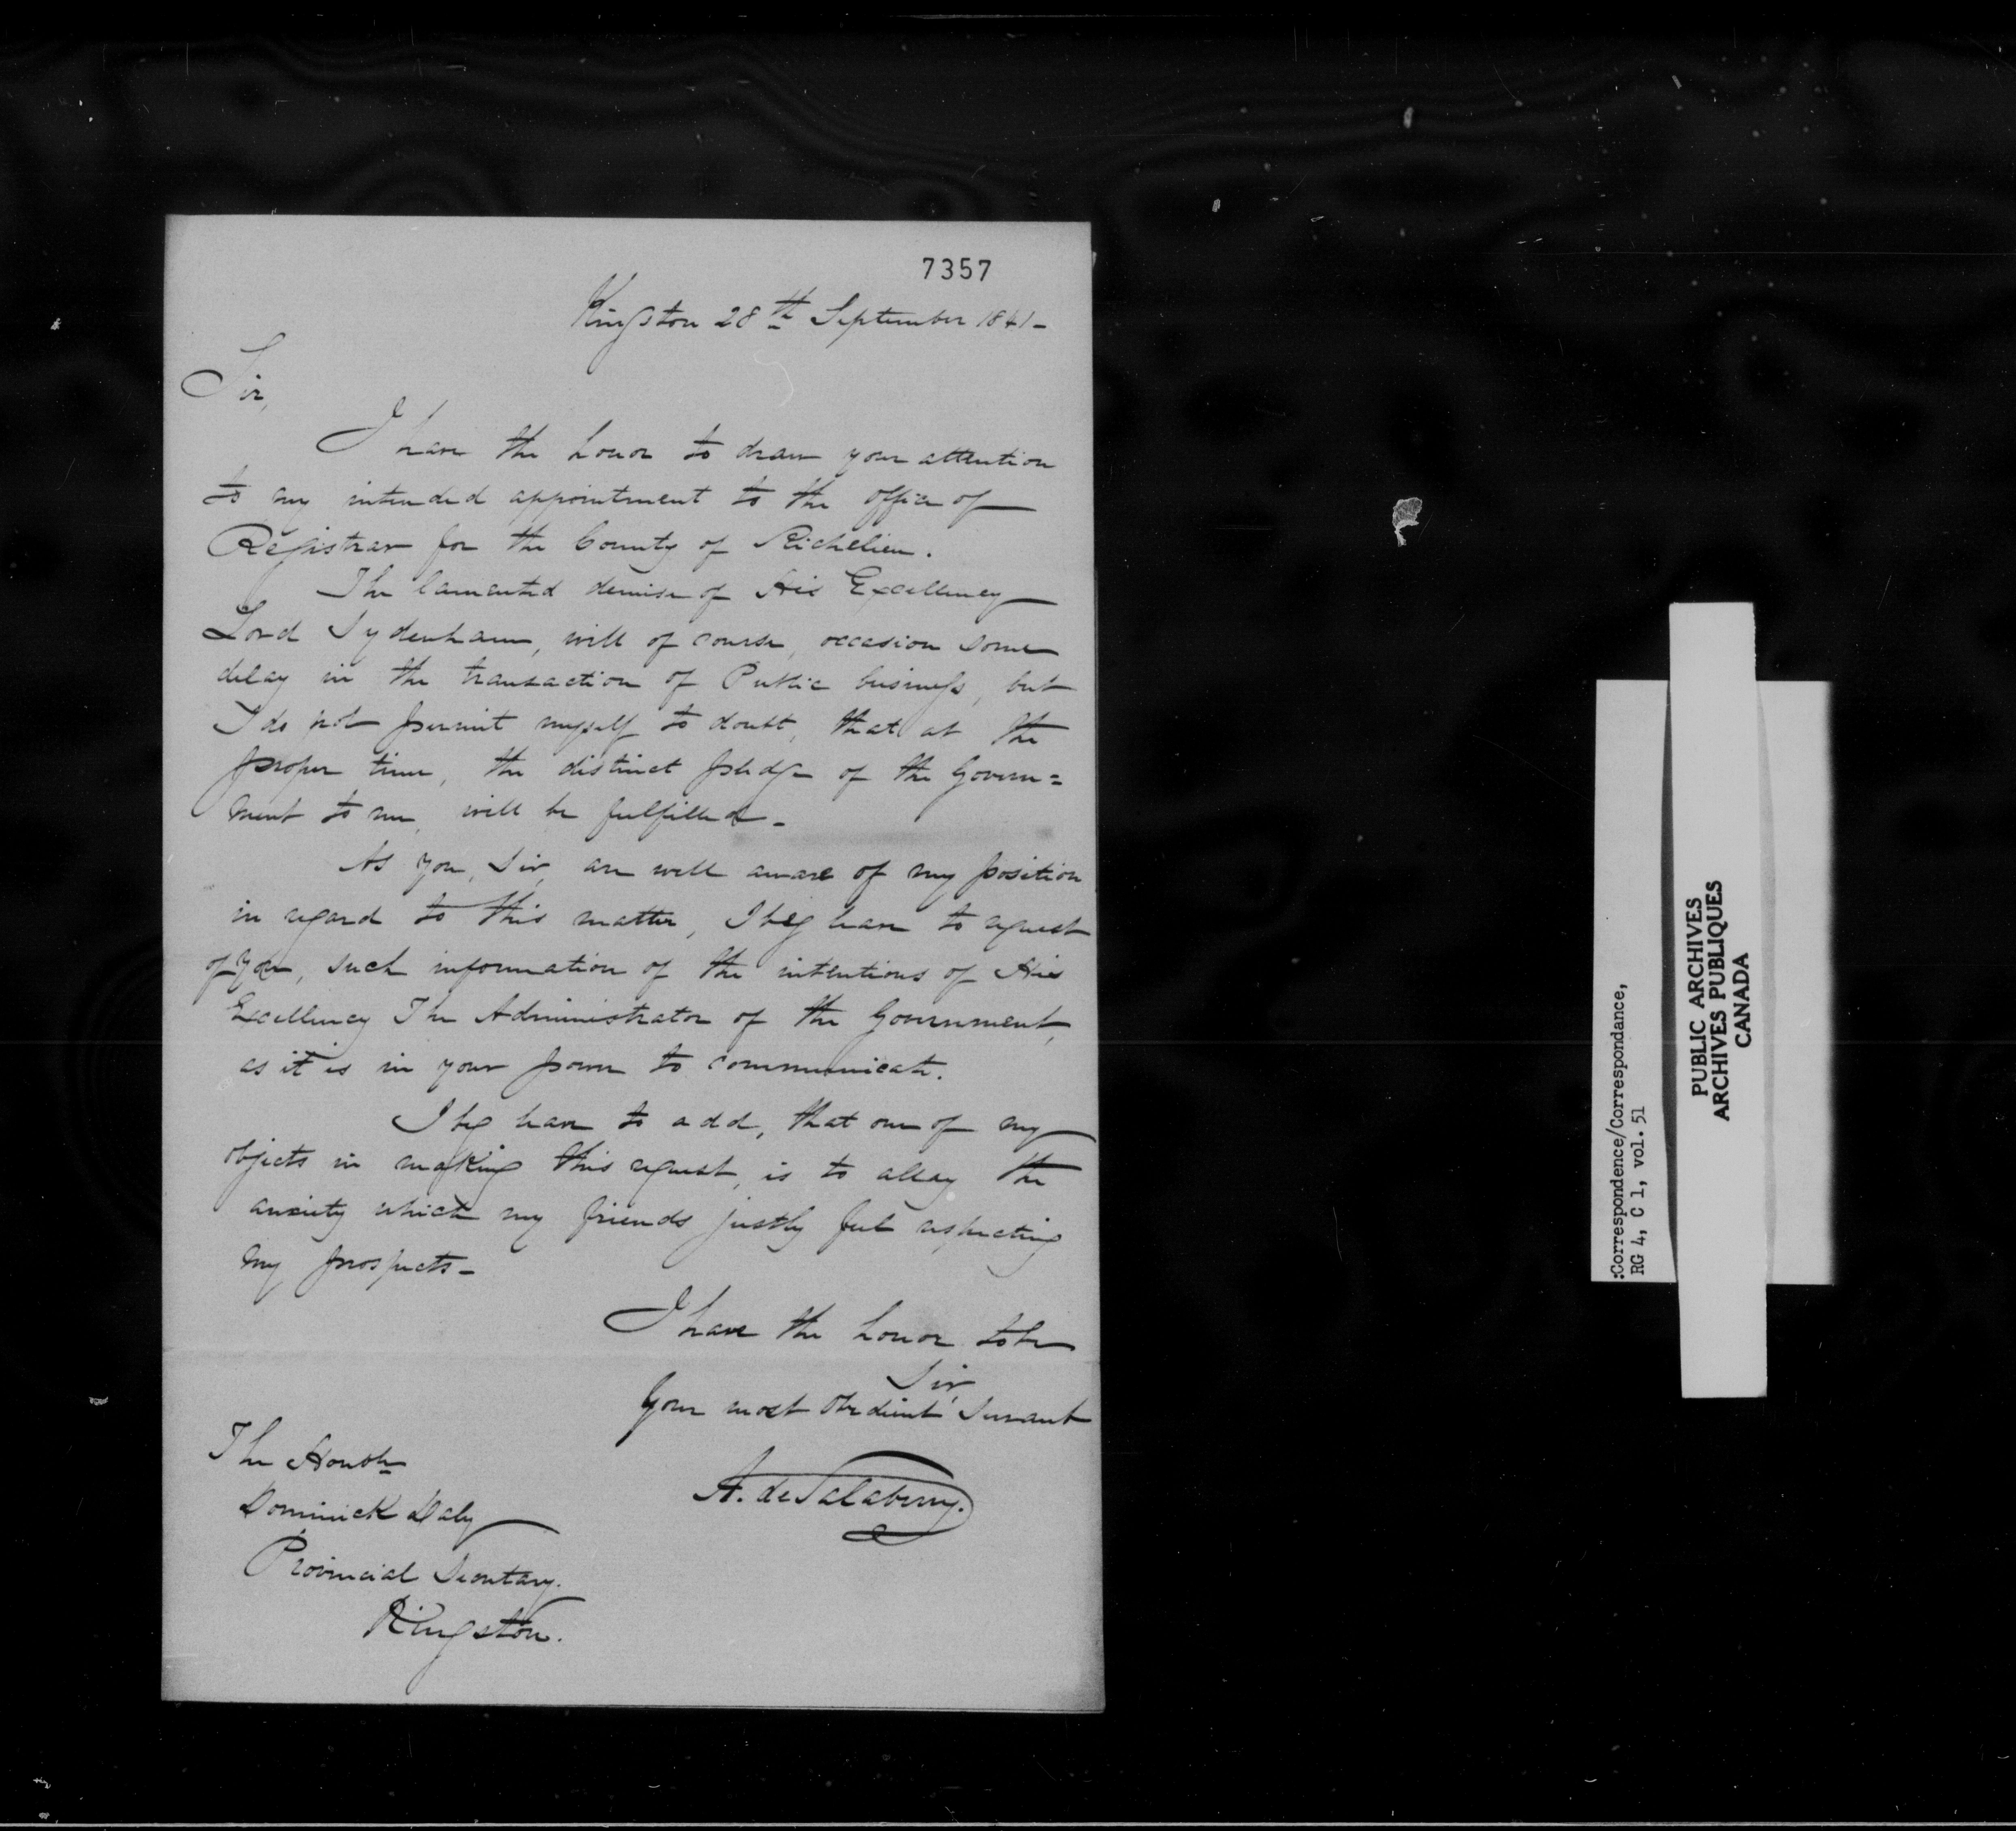 7357
Kingston 28th September 1841-
Sir,
I have the honor to draw your attention
to my intended appointment to the office of
Registrar for the County of Richelieu.
The lamented demise of His Excellency
Lord Sydenham, will of course, occasion some
delay in the transaction of Public business, but
I do not permit myself to doubt, that at the
proper time, the distinct pledge of the Govern=
ment to me, will be fulfilled-
As you, Sir, are well aware of my position
in regard to this matter, I beg leave to request
of you, such information of the intentions of His
Excellency The Administrator of the Government,
as it is in your power to communicate.
I beg leave to add, that one of my
objects in making this request, is to allay the
anxiety which my friends justly feel respecting
my prospects-
I have the honor to be
Sir,
Your most obedient Servant
A. de Salaberry.
The Honble
Dominick Daly
Provincial Secretary.
Kingston.
:Correspondence/Correspondance,
RG 4, C 1, vol. 51
PUBLIC ARCHIVES
ARCHIVES PUBLIQUES
CANADA